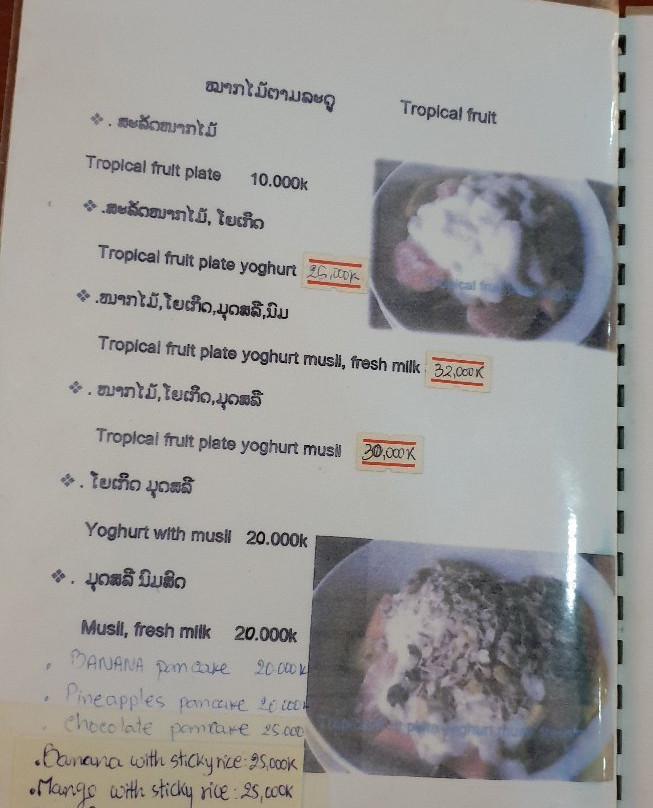 ໝາກໄມ້ຕາມລະດູ Tropical fruit
❖ . ສະລັດໝາກໄມ້
Tropical fruit plate 10.000k
❖ .ສະລັດໝາກໄມ້, ໂຍເກີດ
Tropical fruit plate yoghurt 25,000K
❖ .ໝາກໄມ້,ໂຍເກີດ,ມຸດສລີ,ນົມ
Tropical fruit plate yoghurt musli, fresh milk 32,000K
❖ . ໝາກໄມ້,ໂຍເກີດ,ມຸດສລີ
Tropical fruit plate yoghurt musli 30,000K
❖ . ໂຍເກີດ ມຸດສລີ
Yoghurt with musli 20.000k
❖ . ມຸດສລີ ນົມສົດ
Musli, fresh milk 20.000k
. BANANA pancake 20.000k
. Pineapples pancake
. chocolate pancake 25.000
.Banana with sticky rice: 25,000K
.Mango with sticky rice: 25,000K
Tropical fruit
Tropical fruit plate yoghurt musli